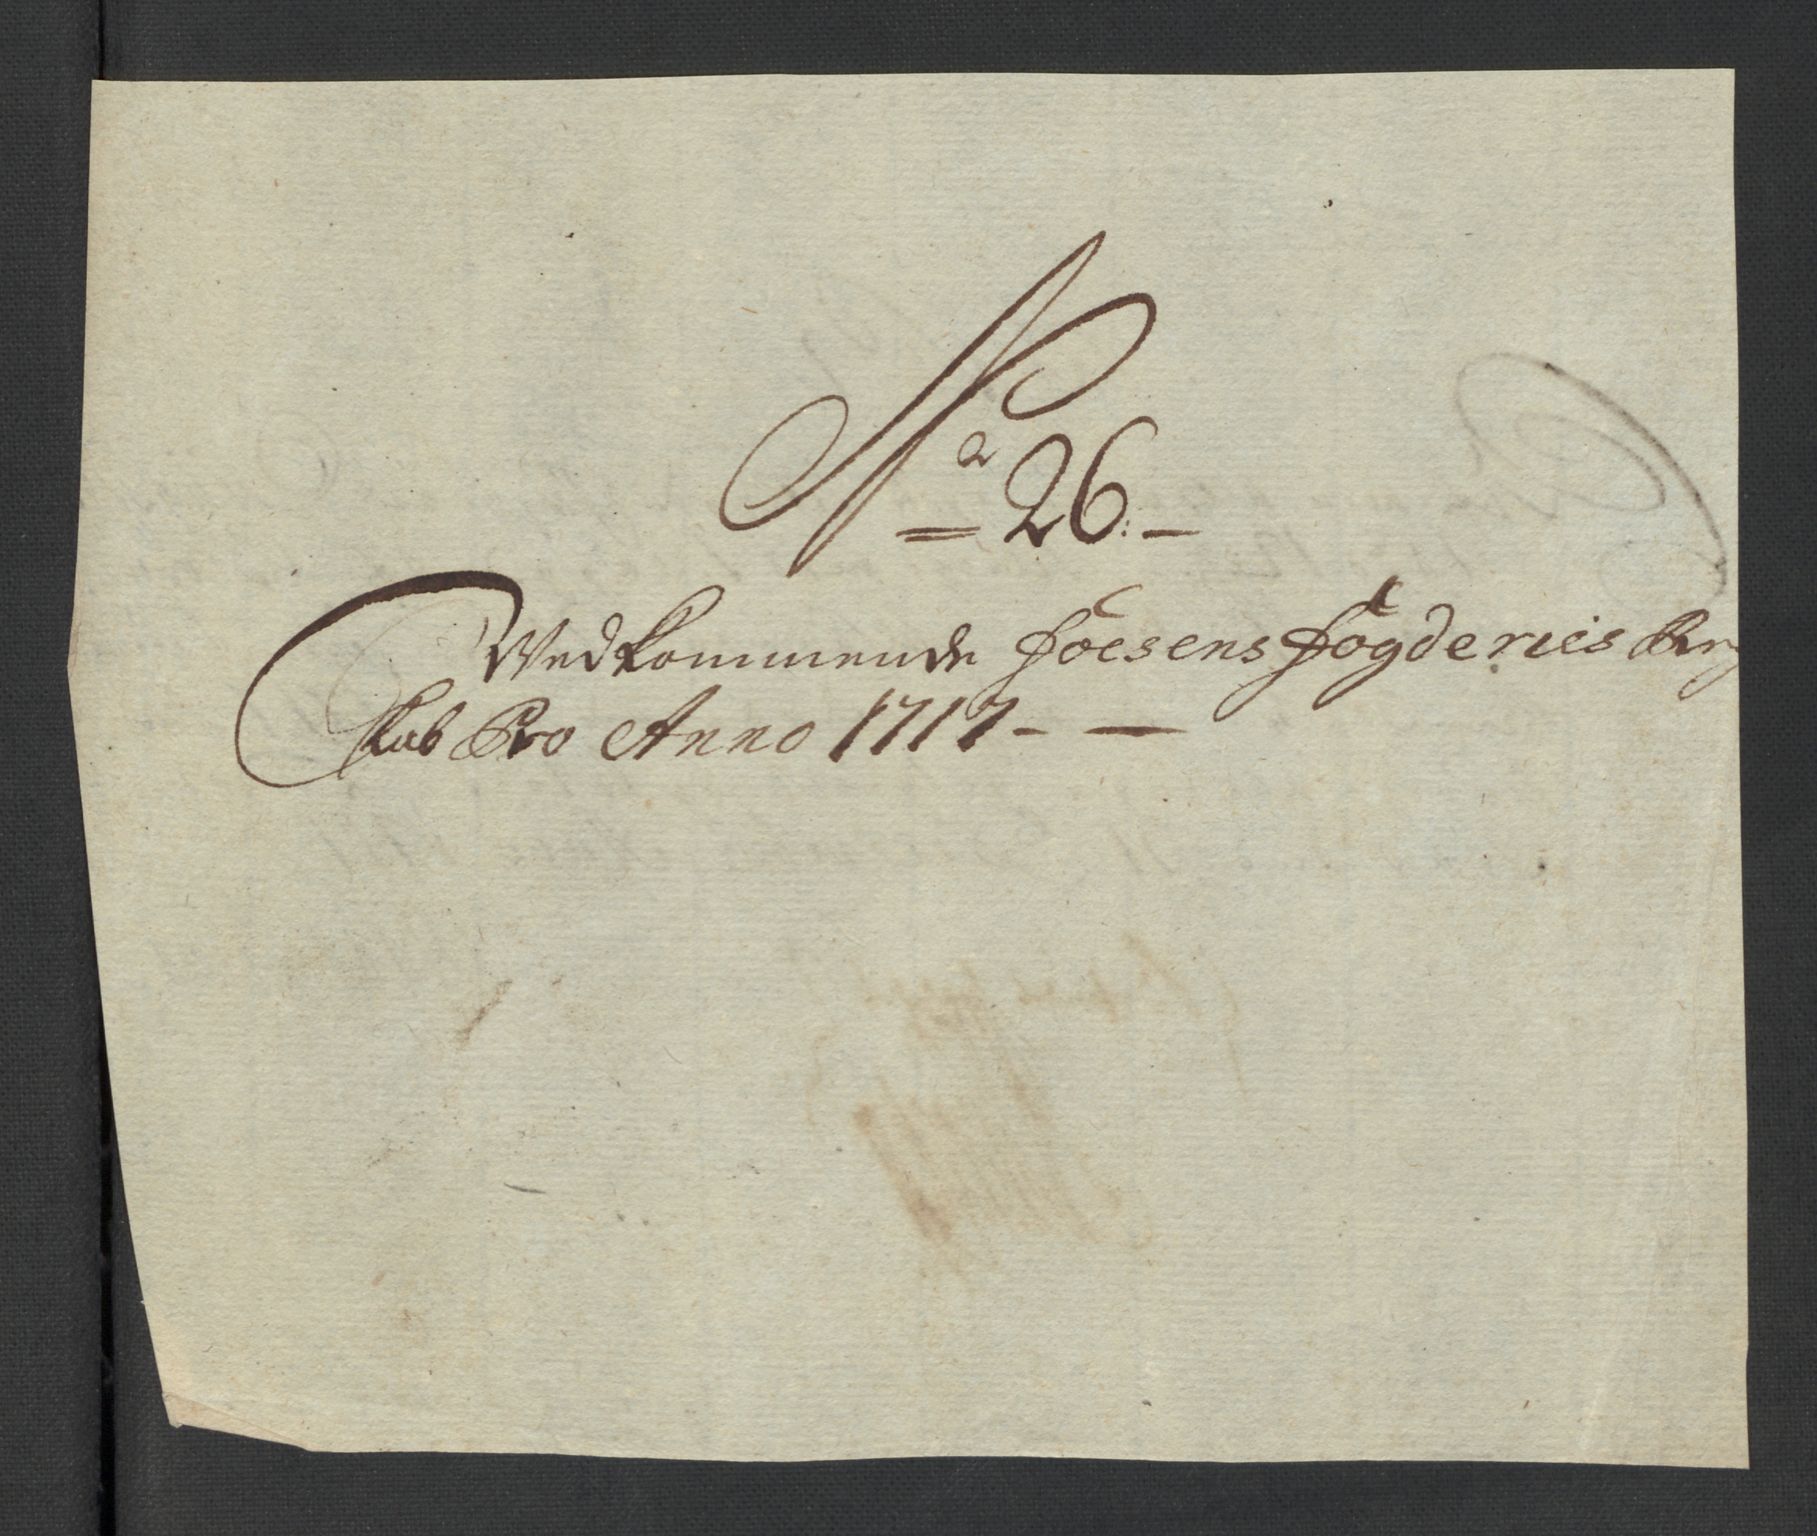 No 26.
Vedkommende Foesens Fogderies Reg
skab Pro Anno 1717